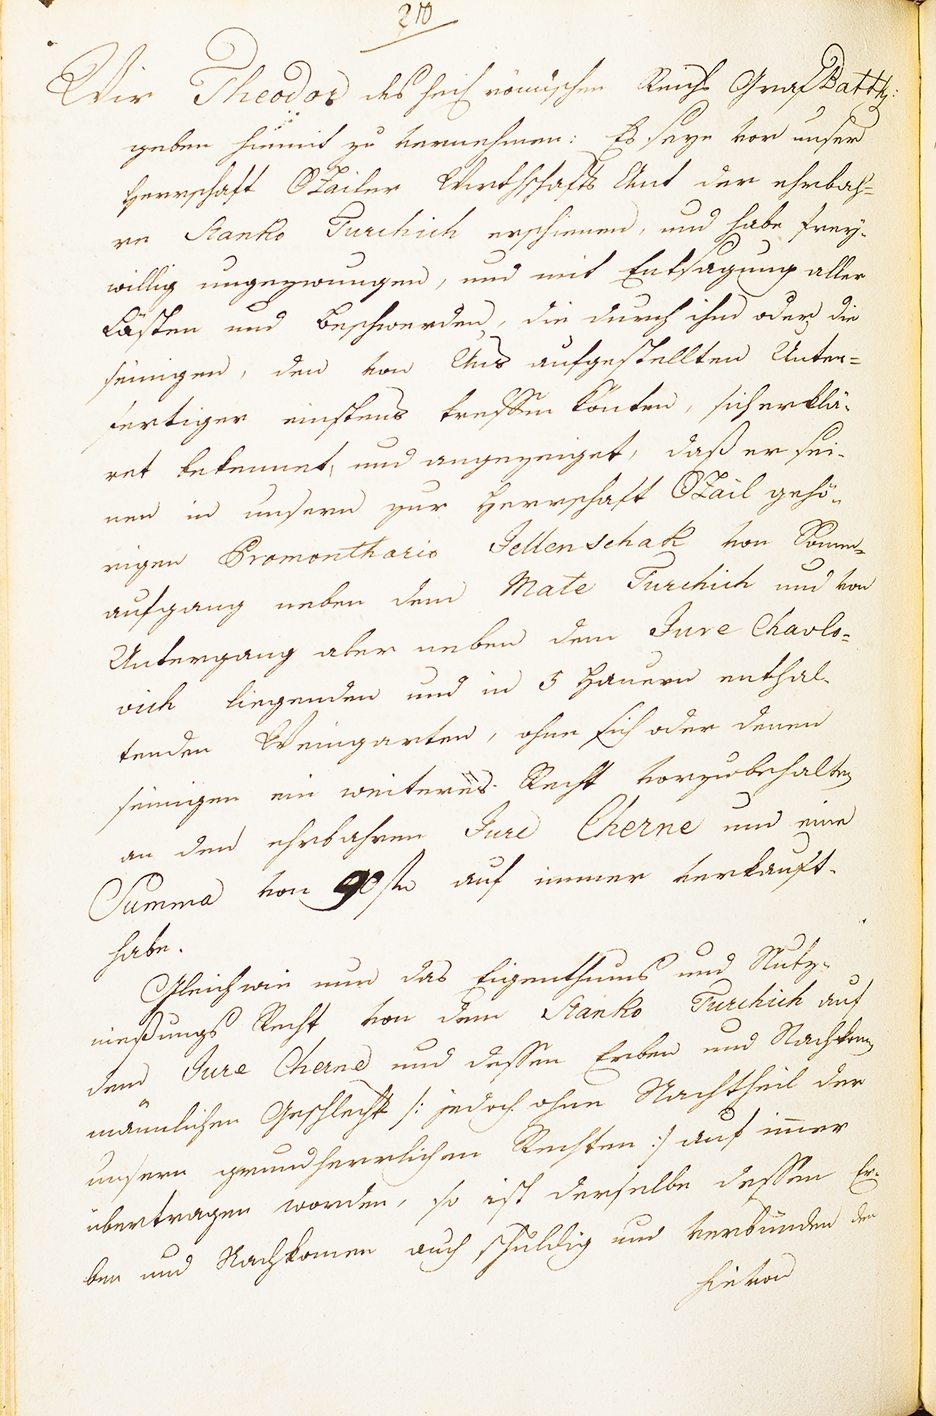 210
Wir Theodor des heil römischen Reichs Graf Batthy:
geben hiemit zu vernehmen: Es seye vor unser
Herrschaft Ozailer Wirthschafts Amt der ehrbah-
re Stanko Turchich erschienen, und habe frey-
willig ungezwungen, und mit Entsagung aller
Lästen und Beschwerden, die durch ihm oder die
seinigen, den von Uns aufgestellten Unter-
fertiger einstens treffen könten, sich erklä-
ret bekennet, und angezeiget, daß er sei-
nen in unsern zur Herrschaft Ozail gehö-
rigen Promonthorio Jellenschak von Sonen-
aufgang neben dem Mate Turchich und von
Untergang aber neben dem Jure Chavlo-
vich liegenden und in 5 Hauern enthal-
tenden Weingarten, ohne sich oder denen
seinigen ein weiteres Recht vorzubehalten
an den ehrbahren Jure Cherne um eine
Summa von 90 fl auf immer verkauft
habe.
Gleichwie nun das Eigenthums und Nutz-
nießungs Recht von dem Stanko Turchich auf
dem Jure Cherne und dessen Erben und Nachkom
männlichen Geschlecht /: jedoch ohne Nachtheil der
unsern grundherrlichen Rechten :/ auf immer
übertragen worden, so ist derselbe dessen Er-
ben und Nachkomen auch schuldig und verbunden den
hievon